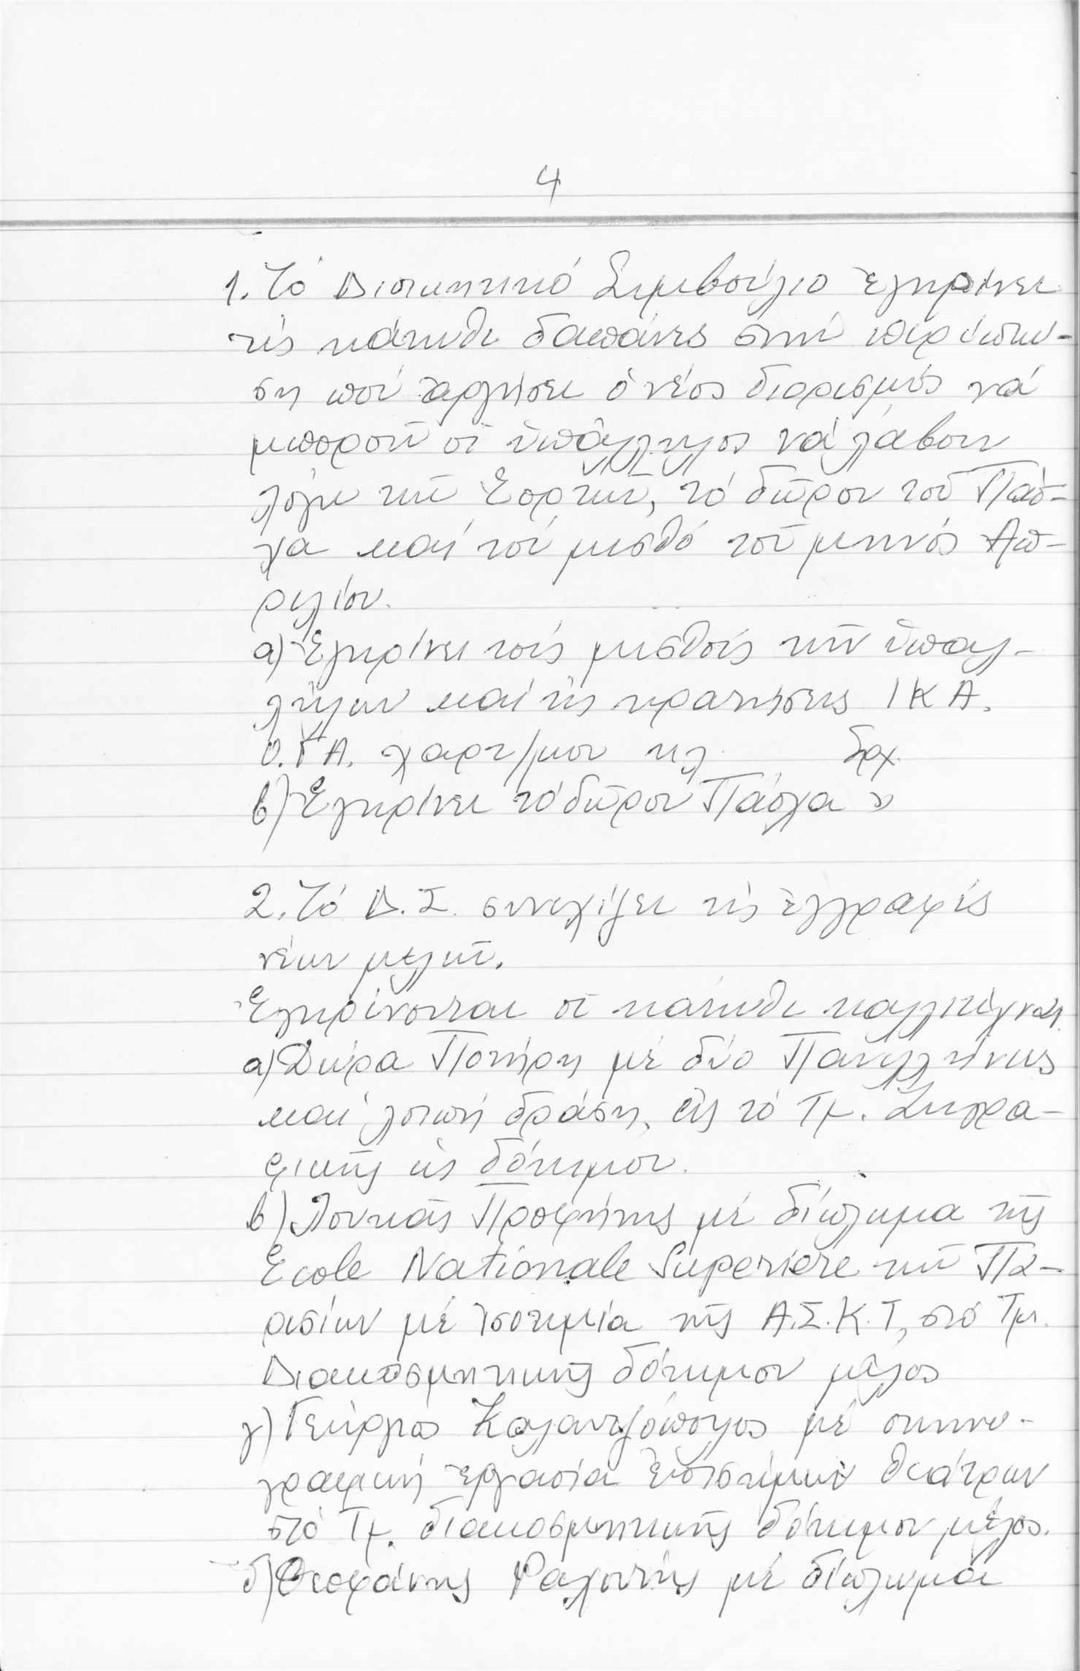 4
1. Τό Διοικητικό Συμβούλιο ἐγκρίνει
τίς κάτωθι δαπάνες στήν περίπτω-
ση πού ἀργήσει ὁ νέος διορισμός νά
μποροῦν οἱ ὑπάλληλοι νά λάβουν
λόγω τῶν Ἑορτῶν, τό δῶρον τοῦ Πάσ-
χα καί τόν μισθό τοῦ μηνός Ἀπ-
ριλίου.
α) Ἐγκρίνει τούς μισθούς τῶν ὑπαλ-
λήλων καί τίς κρατήσεις ΙΚΑ.
Ο.Γ.Α. χαρτ/μου κλ. δρχ.
β) Ἐγκρίνει τό δῶρον Πάσχα »
2. Τό Δ.Σ. συνεχίζει τίς ἐγγραφές
νέων μελῶν.
Ἐγκρίνονται οἱ κάτωθι καλλιτέχναι.
α) Δώρα Ποτήρη μέ δύο Πανελλήνιες
καί λοιπή δράση, εἰς τό Τμ. Ζωγρα-
φικῆς ὡς δόκιμον.
β) Λουκᾶς Προφήτης μέ δίπλωμα τῆς
Ecole Nationale Superiere τῶν Πα-
ρισίων μέ ἰσοτιμία τῆς Α.Σ.Κ.Τ, στό Τμ.
Διακοσμητικῆς δόκιμον μέλος
γ) Γεώργιος Καλαντζόπουλος μέ σκηνο-
γραφική ἐργασία ἐπισήμων θεάτρων
στό Τμ. διακοσμητικῆς δόκιμον μέλος.
δ) Θεοφάνης μέ δίπλωμα